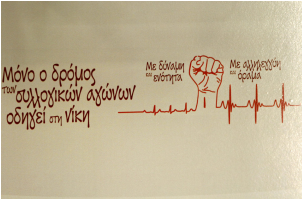 Μόνο ο δρόμος
των συλλογικών αγώνων
οδηγεί στη νίκη
Με δύναμη
και ενότητα
Με αλληλεγγύη
και όραμα